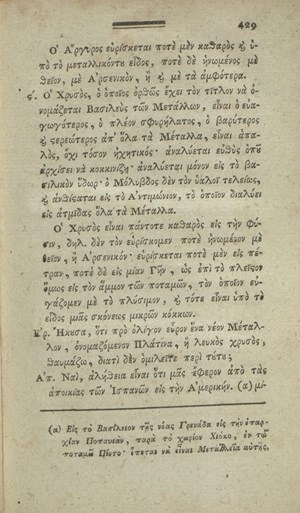 429
Ὁ Ἄργυρος εὑρίσκεται ποτὲ μὲν καθαρὸς ϗ ὑ-
πὸ τὸ μεταλλικόντυ εἶδος, ποτὲ δὲ ἡνωμένος μὲ
Θεῖον, μὲ Ἀρσενικὸν, ἢ ϗ μὲ τὰ ἀμφότερα.
ϛ'. Ὁ Χρυσὸς, ὁ ὁποῖος ὀρθῶς ἔχει τὸν τίτλον νὰ ὀ-
νομάζεται Βασιλεὺς τῶν Μετάλλων, εἶναι ὁ εὐα-
γωγότερος, ὁ πλέον σφυρήλατος, ὁ βαρύτερος
ϗ στερεώτερος ἀπ' ὅλα τὰ Μέταλλα, εἶναι ἁπα-
λὸς, ὄχι τόσον ἠχητικὸς· ἀναλύεται εὐθὺς ὁποῦ
ἀρχίσει νὰ κοκκινίζῃ· ἀναλύεται μόνον εἰς τὸ βα-
σιλικὸν ὕδωρ· ὁ Μόλυβδος δὲν τὸν ὑαλοῖ τελείως,
ϗ ἀνθίσαται εἰς τὸ Ἀντιμώνιον, τὸ ὁποῖον διαλύει
εἰς ἀτμίδας ὅλα τὰ Μέταλλα.
Ὁ Χρυσὸς εἶναι πάντοτε καθαρὸς εἰς τὴν φύ-
σιν, δηλ. δὲν τὸν εὑρίσκομεν ποτὲ ἡνωμένον μὲ
Θεῖον, ἢ Ἀρσενικὸν· εὑρίσκεται ποτὲ μὲν εἰς πέ-
τραν, ποτὲ δὲ εἰς μίαν Γῆν, ὡς ἐπὶ τὸ πλεῖστον
ὅμως εἰς τὸν ἄμμον τῶν ποταμῶν, τὸν ὁποῖον εὐ-
γάζομεν μὲ τὸ πλύσιμον, ϗ τότε εἶναι ὑπὸ τὸ
εἶδος μιᾶς σκόνεως μικρῶν κόκκων.
Ἐρ. Ἤκουσα, ὅτι πρὸ ὀλίγου εὗρον ἕνα νέον Μέταλ-
λον, ὀνομαζόμενον Πλάτινα, ἢ λευκὸς χρυσὸς,
Θαυμάζω, διατὶ δὲν ὁμιλεῖτε περὶ τούτου;
Ἀπ. Ναὶ, ἀλήθεια εἶναι ὅτι μᾶς ἔφερον ἀπὸ τὰς
ἀποικίας τῶν Ἱσπανῶν εἰς τὴν Ἀμερικήν. (α) μί-
(α) Εἰς τὸ Βασίλειον τῆς νέας Γρενάδα εἰς τὴν ἐπαρ-
χίαν Ποπαυιὰν, παρὰ τὸ χωρίον Χιόκο, ἐν τῷ
ποταμῷ Πίντο· ἕπεται νὰ εἶναι Μεταλλεῖα αὐτῆς.